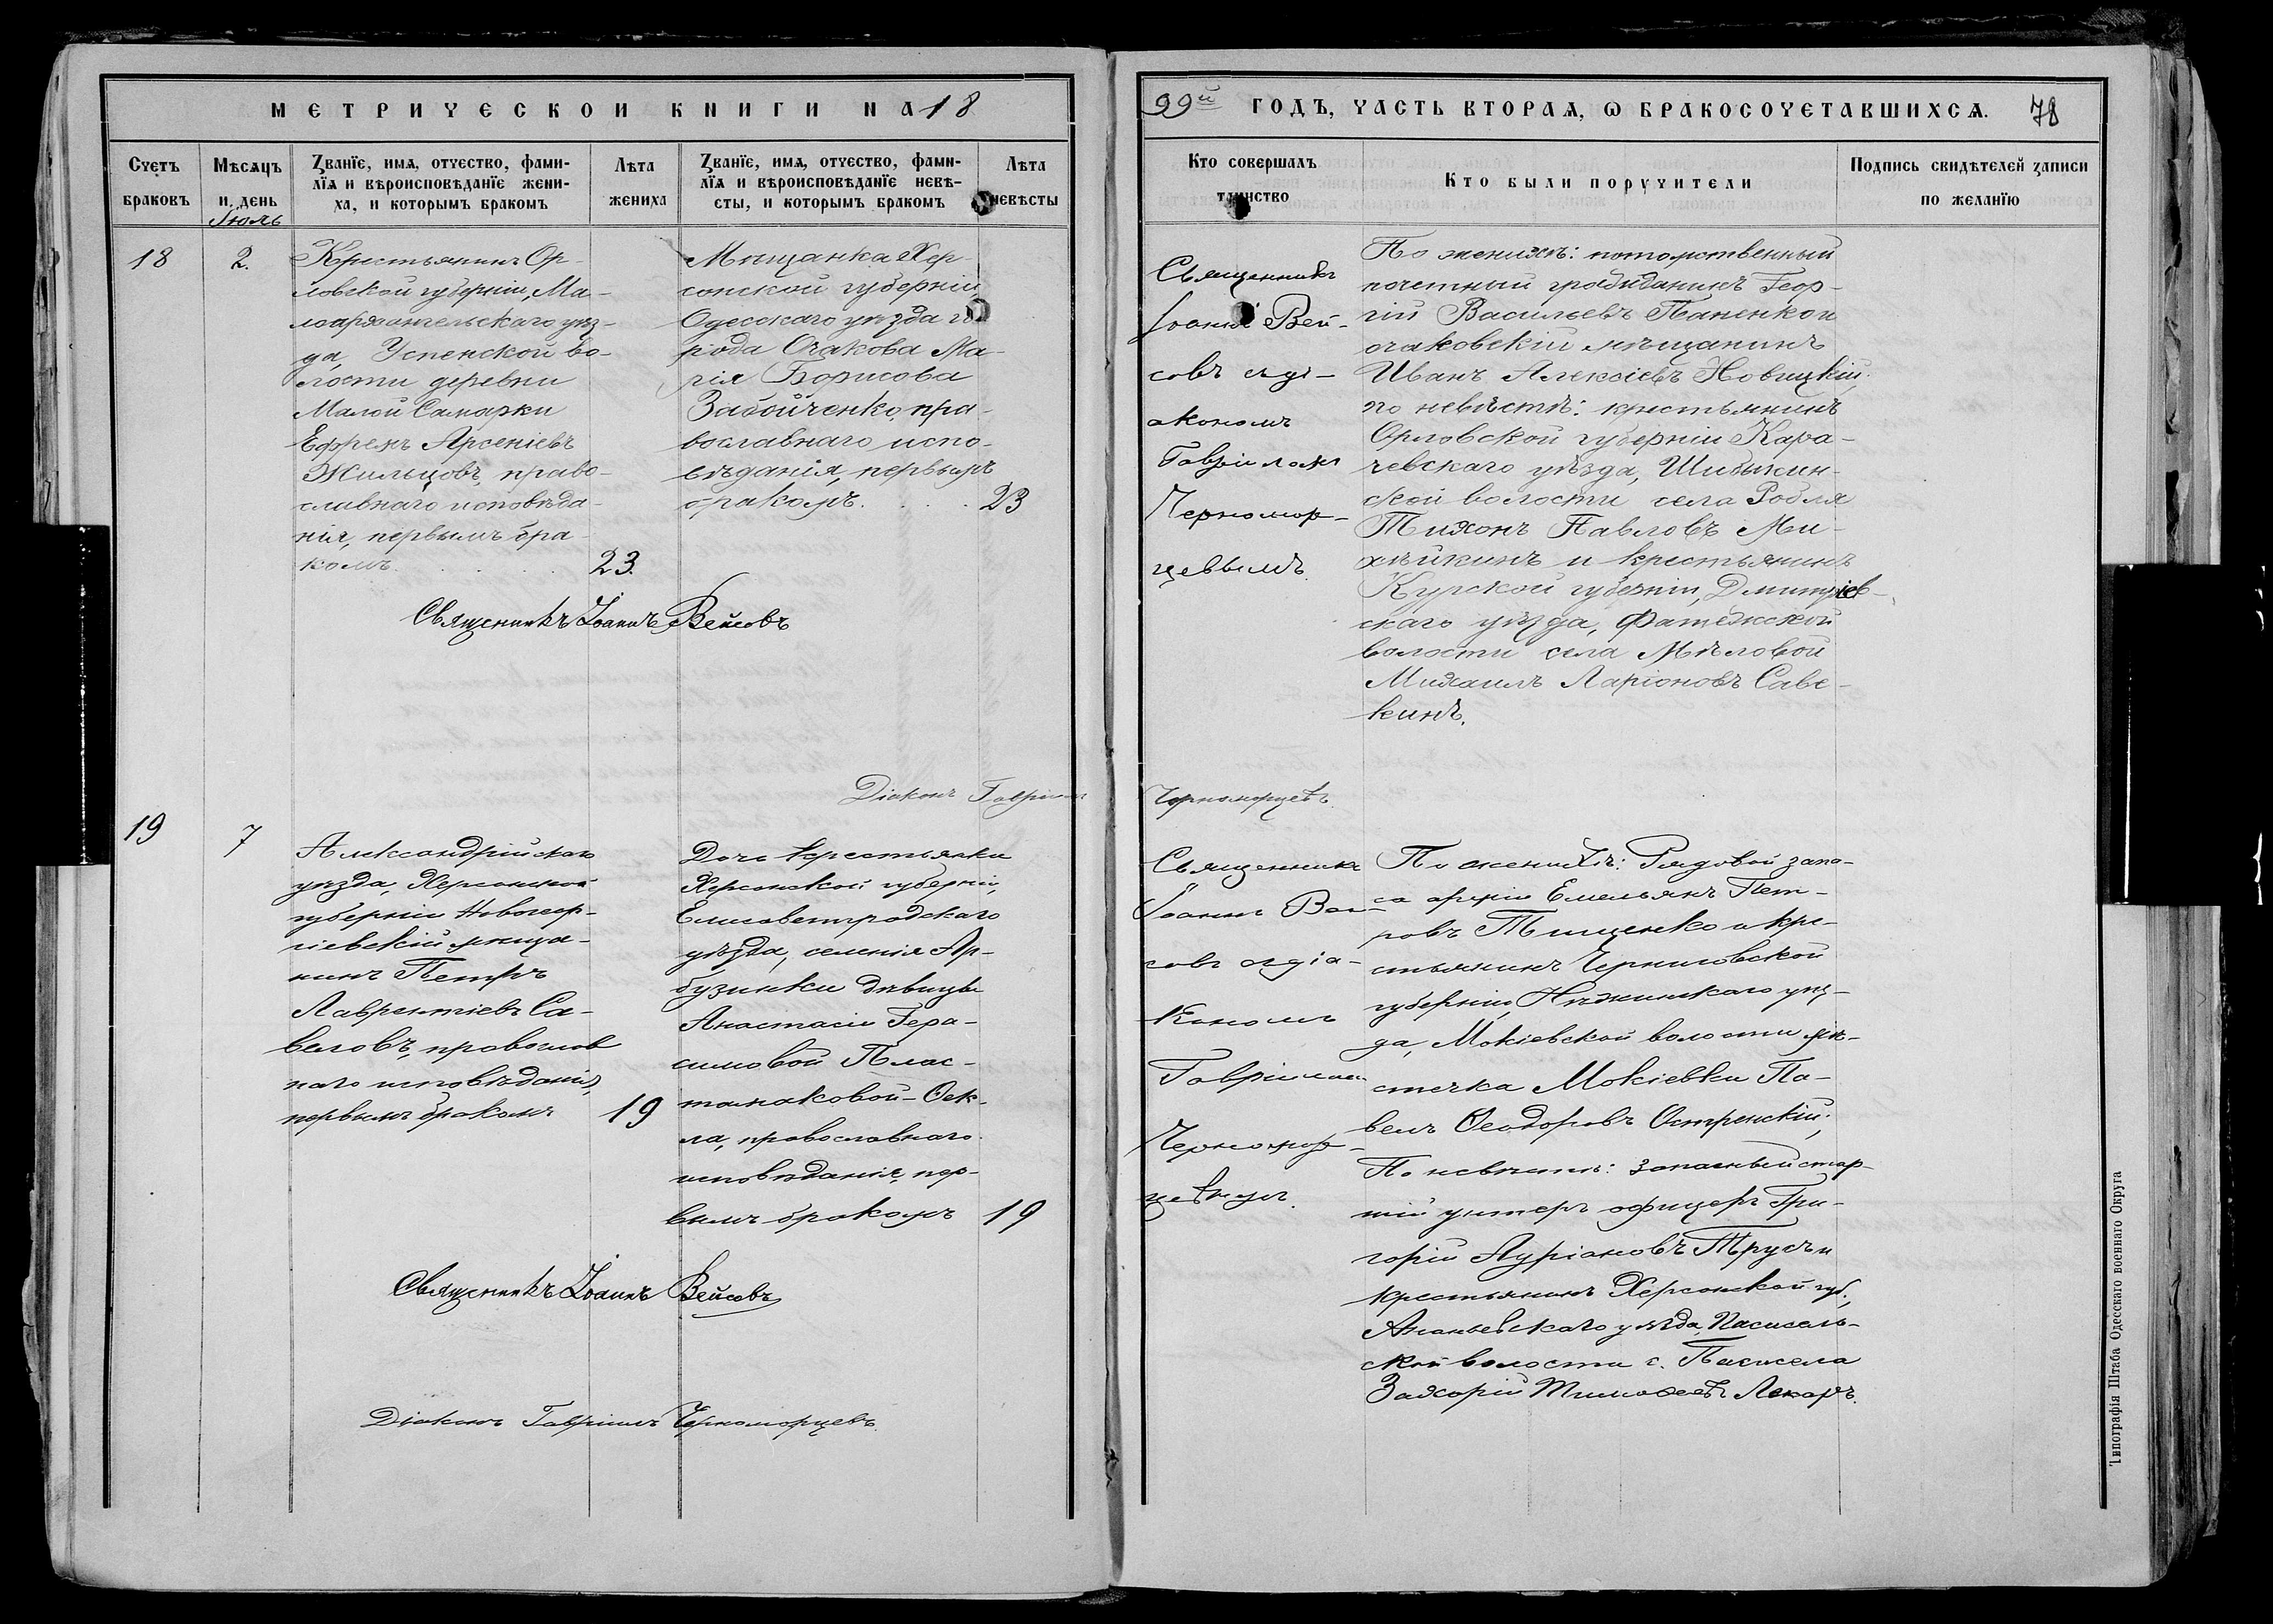 МЕТРИЧЕСКОЙ КНИГИ НА 18
99й ГОДЪ, ЧАСТЬ ВТОРАѦ, Ѡ БРАКОСОЧЕТАВШИХСѦ. 78
Счетъ браковъ
Мѣсяцъ и день
Званїе, имѧ, отчество, фами-
лїѧ и вѣроисповѣданїе жени-
ха, и которымъ бракомъ
Лѣта жениха
Званїе, имѧ, отчество, фами-
лїѧ и вѣроисповѣданїе невѣ-
сты, и которымъ бракомъ
Лѣта невѣсты
Кто совершалъ таинство
Кто были поручители
Подпись свидѣтелей записи
по желанїю
Іюль
18
2.
Крестьянинъ Ор-
ловской губерніи, Ма-
лоархангельскаго уѣз-
да, Успенской во-
лости деревни
Малой Самарки
Ефремъ Арсеніевъ
Жильцовъ, право-
славнаго исповѣда-
нія, первымъ бра-
комъ.
23.
Мѣщанка Хер-
сонской губерніи
Одесскаго уѣзда го-
рода Очакова Ма-
рія Борисова
Забойченко, пра-
вославнаго испо-
вѣданія, первымъ
бракомъ.
23
Священникъ
Іоаннъ Вей-
совъ съ ді-
акономъ
Гавріиломъ
Черномор-
цевымъ.
По женихѣ: потомственный
почетный гражданинъ Геор-
гій Васильевъ Паненко и
очаковскій мѣщанинъ
Иванъ Алексіевъ Новицкій;
по невѣстѣ: крестьянинъ
Орловской губерніи Кара-
чевскаго уѣзда, Шибкин-
ской волости села Робля
Тихонъ Павловъ Ми-
хѣйкинъ и крестьянинъ
Курской губерніи, Дмитріев-
скаго уѣзда, Фатежской
волости села Мѣловой
Михаилъ Ларіоновъ Саве-
кинъ.
Священникъ Іоаннъ Вейсовъ
Діаконъ Гавріилъ
Черноморцевъ.
19
7
Александрійскаго
уѣзда, Херсонской
губерніи Новогеор-
гіевскій мѣща-
нинъ Петръ
Лаврентіевъ Са-
веловъ, православ
наго исповѣданія,
первымъ бракомъ
19
Дочь крестьянки
Херсонской губерніи,
Елисаветградскаго
уѣзда, селенія Ар-
бузинки дѣвицы
Анастасіи Гера-
симовой Плас-
тамаковой - Ѳек-
ла, православнаго
исповѣданія, пер-
вымъ бракомъ
19
Священникъ
Іоаннъ Вей-
совъ съ діа-
кономъ
Гавріиломъ
Черномор-
цевымъ.
По женихѣ: Рядовой запа-
са арміи Емельянъ Пет-
ровъ Тищенко и кре-
стьянинъ Черниговской
губерніи, Нѣжинскаго уѣз-
да, Мокіевской волости мѣ-
стечка Мокіевки Па-
велъ Ѳеодоровъ Остренскій;
По невѣстѣ: запасный стар-
шій унтеръ офицеръ Гри-
горій Авріановъ Трусъ и
крестьянинъ Херсонской губ.,
Ананьевскаго уѣзда, Пасисель-
ской волости с. Пасисела
Захарій Тимоѳеевъ Лекарь.
Священникъ Іоаннъ Вейсовъ
Діаконъ Гавріилъ Черноморцевъ.
Типографія Штаба Одесскаго военнаго Округа